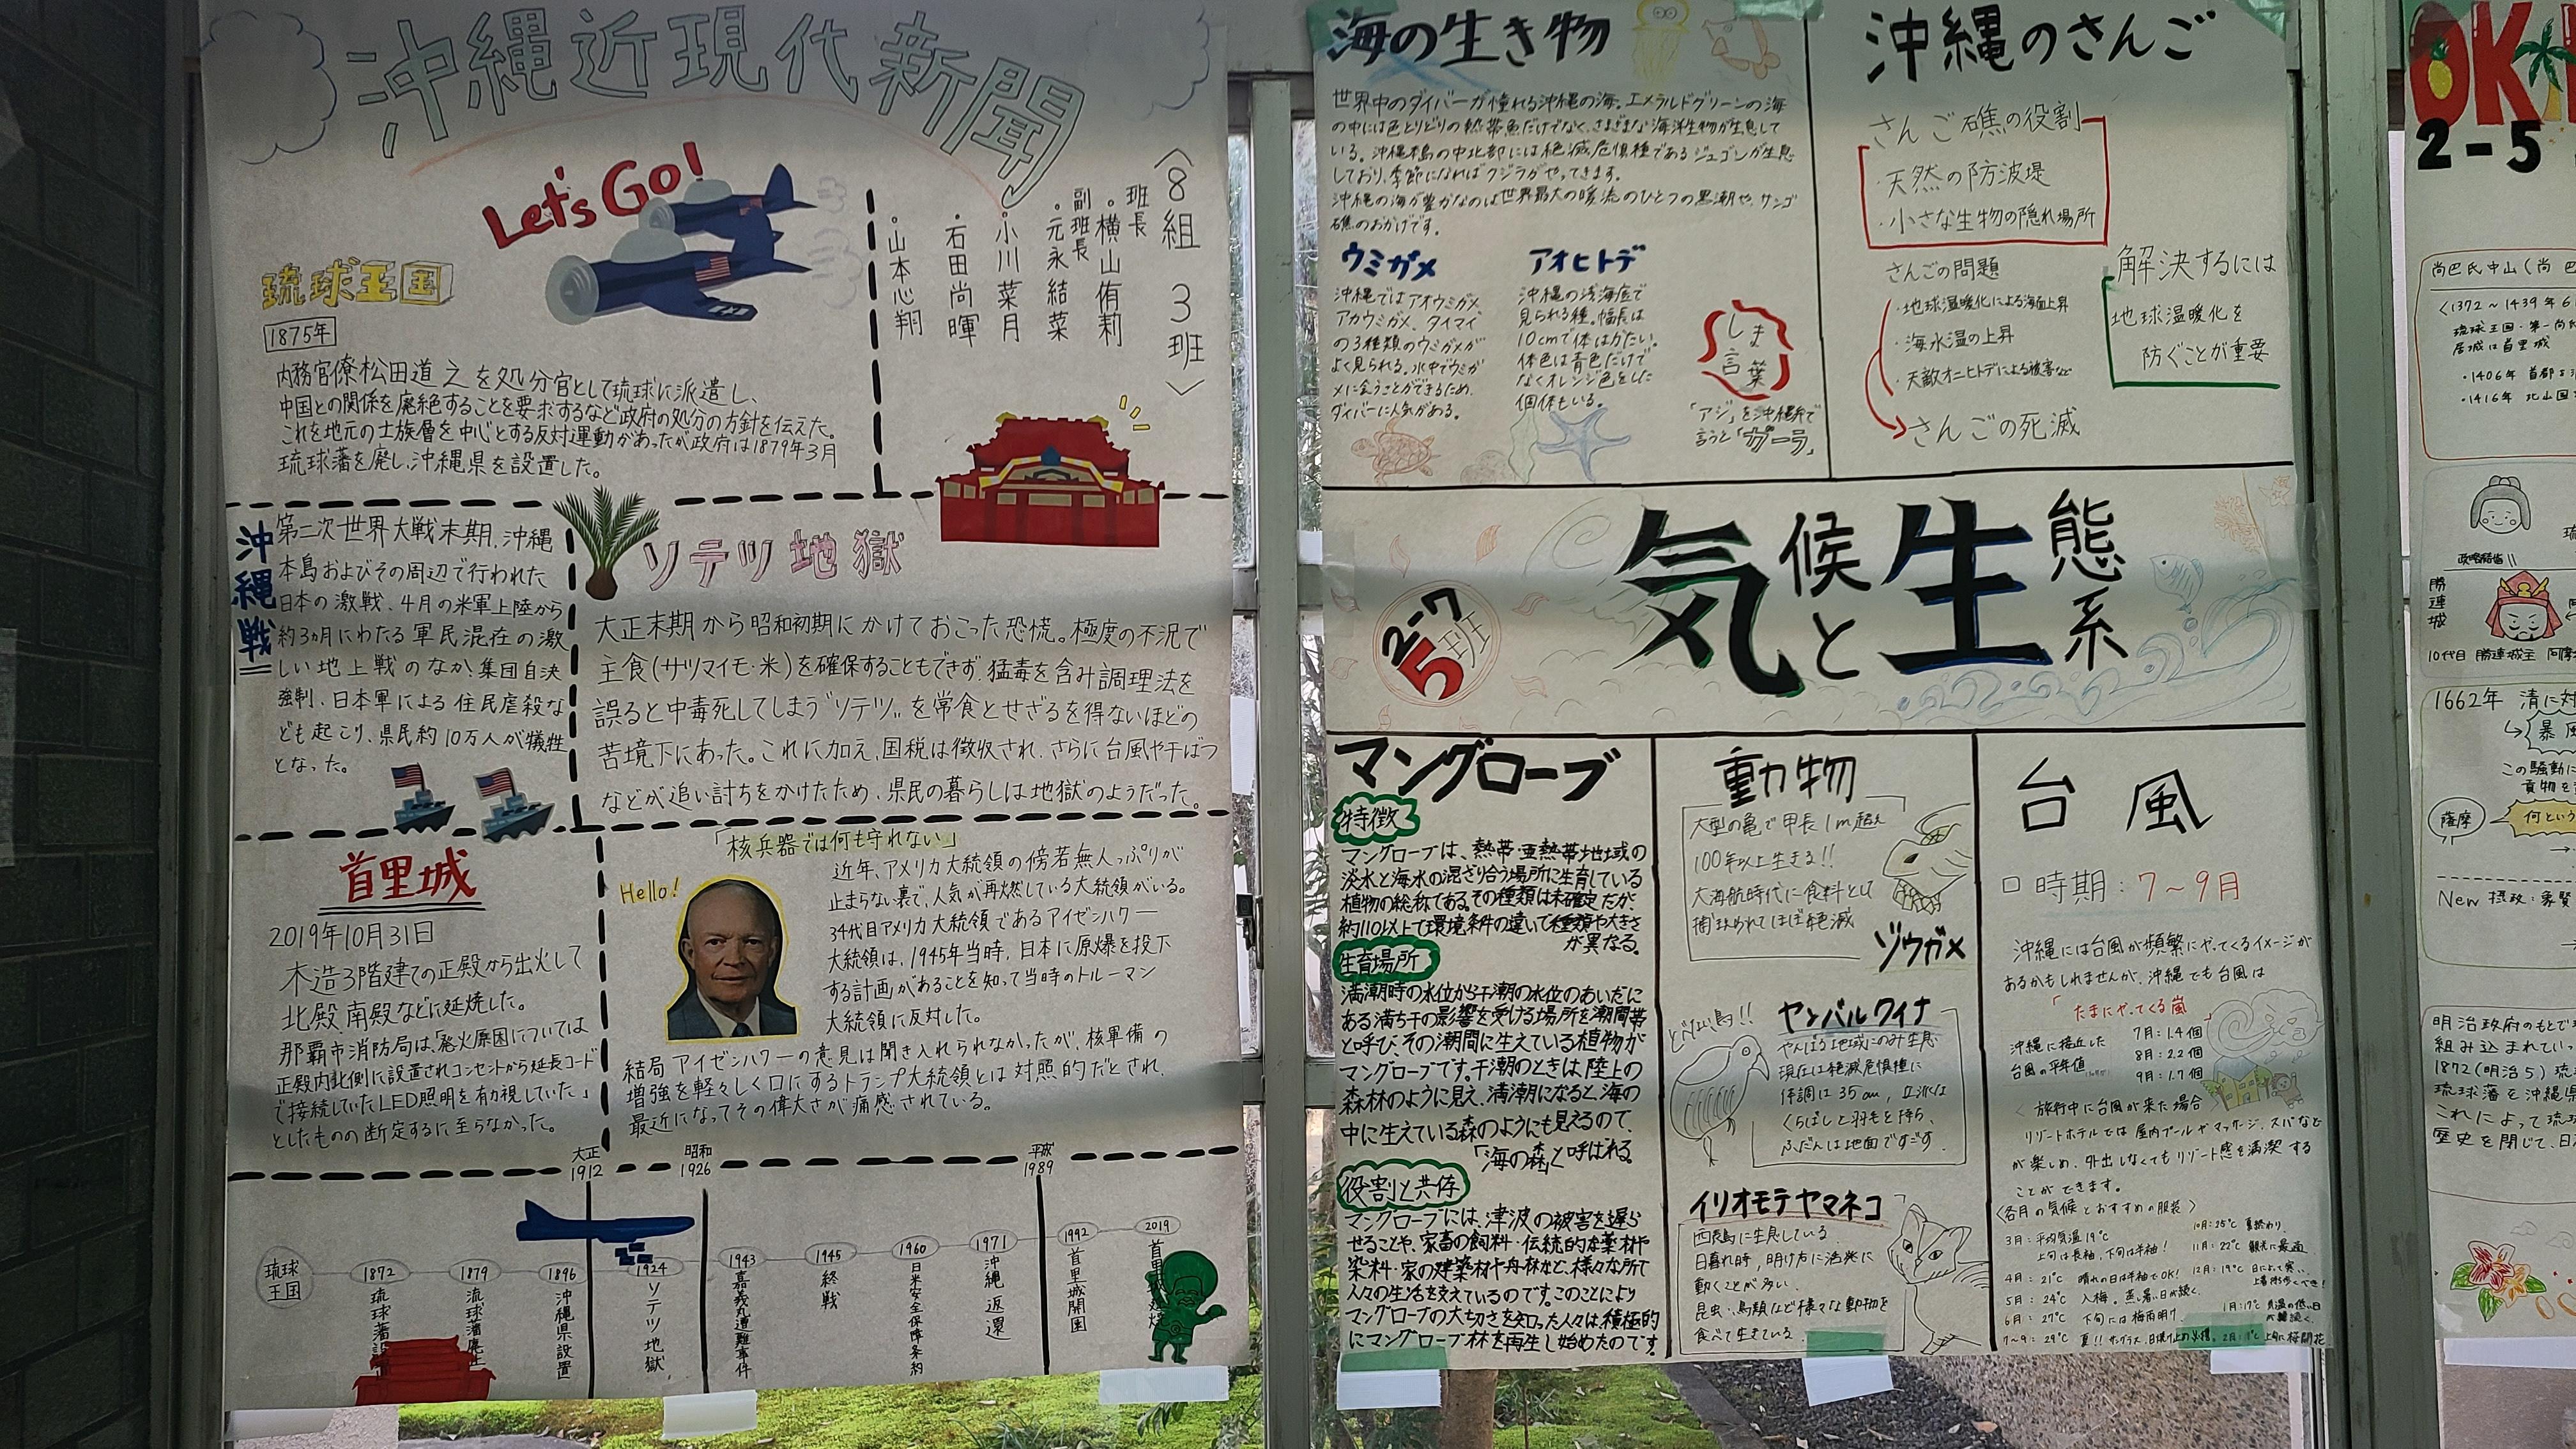 沖縄近現代新聞
Let's Go!
〈8組 3班〉
班長
・横山侑莉
副班長
・元永結菜
・小川菜月
・石田尚暉
・山本心翔
琉球王国
1875年
内務官僚松田道之を処分官として琉球に派遣し、
中国との関係を廃絶することを要求するなど政府の処分の方針を伝えた。
これを地元の士族層を中心とする反対運動があったが政府は1879年3月
琉球藩を廃し、沖縄県を設置した。
沖縄戦
第二次世界大戦末期、沖縄
本島およびその周辺で行われた
日本の激戦、4月の米軍上陸から
約3ヵ月にわたる軍民混在の激
しい地上戦のなか、集団自決
強制、日本軍による住民虐殺な
ども起こり、県民約10万人が犠牲
となった。
ソテツ地獄
大正末期から昭和初期にかけておこった恐慌。極度の不況で
主食(サツマイモ・米)を確保することもできず、猛毒を含み調理法を
誤ると中毒死してしまう"ソテツ"を常食とせざるを得ないほどの
苦境下にあった。これに加え、国税は徴収され、さらに台風や干ばつ
などが追い討ちをかけたため、県民の暮らしは地獄のようだった。
首里城
2019年10月31日
木造3階建ての正殿から出火して
北殿、南殿などに延焼した。
那覇市消防局は、「発火原因については
正殿内北側に設置されコンセントから延長コード
で接続していたLED照明を有力視していた」
としたものの断定するに至らなかった。
「核兵器では何も守れない」
Hello!
近年、アメリカ大統領の傍若無人っぷりが
止まらない裏で、人気が再燃している大統領がいる。
34代目アメリカ大統領であるアイゼンハワー
大統領は、1945年当時、日本に原爆を投下
する計画があることを知って当時のトルーマン
大統領に反対した。
結局アイゼンハワーの意見は聞き入れられなかったが、核軍備の
増強を軽々しく口にするトランプ大統領とは対照的だとされ、
最近になってその偉大さが痛感されている。
大正
1912
昭和
1926
平成
1989
琉球
王国
1872
琉球藩設置
1879
琉球藩廃止
1896
沖縄県設置
1924
ソテツ地獄
1943
嘉義丸遭難事件
1945
終戦
1960
日米安全保障条約
1971
沖縄返還
1992
首里城開園
2019
首里城
海の生き物
世界中のダイバーが憧れる沖縄の海。エメラルドグリーンの海
の中には色とりどりの熱帯魚だけでなく、さまざまな海洋生物が生息して
いる。沖縄本島の中北部には絶滅危惧種であるジュゴンが生息
しており、季節になればクジラがやってきます。
沖縄の海が豊かなのは世界最大の暖流のひとつの黒潮や、サンゴ
礁のおかげです。
ウミガメ
沖縄ではアオウミガメ、
アカウミガメ、タイマイ
の3種類のウミガメが
よく見られる。水中でウミガ
メに会うことができるため、
ダイバーに人気がある。
アオヒトデ
沖縄の浅海底で
見られる種。幅長は
10cmで体はかたい。
体色は青色だけで
なくオレンジ色をした
個体もいる。
しま
言葉
「アジ」を沖縄弁で
言うと「ガーラ」
沖縄のさんご
さんご礁の役割
・天然の防波堤
・小さな生物の隠れ場所
さんごの問題
・地球温暖化による海面上昇
・海水温の上昇
・天敵オニヒトデによる被害など
さんごの死滅
解決するには
地球温暖化を
防ぐことが重要
2-7
5班
気候と生態系
マングローブ
特徴
マングローブは、熱帯・亜熱帯地域の
淡水と海水の混ざり合う場所に生育している
植物の総称である。その種類は未確定だが、
約110以上で環境条件の違いで種類や大きさ
が異なる。
生育場所
満潮時の水位から干潮の水位のあいだに
ある満ち干の影響を受ける場所を潮間帯
と呼び、その潮間に生えている植物が
マングローブです。干潮のときは陸上の
森林のように見え、満潮になると海の
中に生えている森のようにも見えるので、
「海の森」と呼ばれる。
役割と共存
マングローブには、津波の被害を遅ら
せることや、家畜の飼料・伝統的な薬材や
染料・家の建築材や舟材など、様々な所で
人々の生活を支えているのです。このことにより
マングローブの大切さを知った人々は、積極的
にマングローブ林を再生し始めたのです。
動物
大型の亀で甲長1m超え
100年以上生きる!!
大海航時代に食料として
捕獲されてほぼ絶滅
ゾウガメ
とべない鳥!!
ヤンバルクイナ
やんばる地域にのみ生息
現在は絶滅危惧種に
体調は35cm,
くちばしと羽毛を持ち、
ふだんは地面ですごす
イリオモテヤマネコ
西表島に生息している
日暮れ時,明け方に活発に
動くことが多い
昆虫、鳥類など様々な動物を
食べて生きている
台風
時期:7〜9月
沖縄には台風が頻繁にやってくるイメージが
あるかもしれませんが、沖縄でも台風は
「たまにやってくる嵐
沖縄に接近した
台風の平年値
7月:1.4個
8月:2.2個
9月:1.7個
〈旅行中に台風が来た場合
リゾートホテルでは屋内プールやマッサージ、スパなど
が楽しめ、外出しなくてもリゾート感を満喫する
ことができます。
〈各月の気候とおすすめの服装〉
3月:平均気温19℃
上旬は長袖、下旬は半袖!
4月:21℃ 晴れの日は半袖でOK!
5月:24℃ 入梅。蒸し暑い日が続く.
6月:27℃ 下旬には梅雨明け
7〜9:29℃ 夏!!サングラス、日焼け止め必須.
10月:25℃ 夏終わり
11月:22℃ 観光に最適
12月:19℃ 日によって寒い.
1月:17℃ 気温の低い日
上旬に桜開花
OK
2-5
尚巴氏中山(尚 巴
〈1372〜1439年6
琉球王国・第一尚氏
居城は首里城
・1406年 首都を
・1416年 北山国
政略結婚
勝連城
10代目 勝連城主 阿摩
1662年 清に対
暴風
この騒動に
貢物を
薩摩
何という
New 摂政:象賢
明治政府のもとで
組み込まれてい
1872(明治5)琉
琉球藩を沖縄県
これによって琉
歴史を閉じて、日